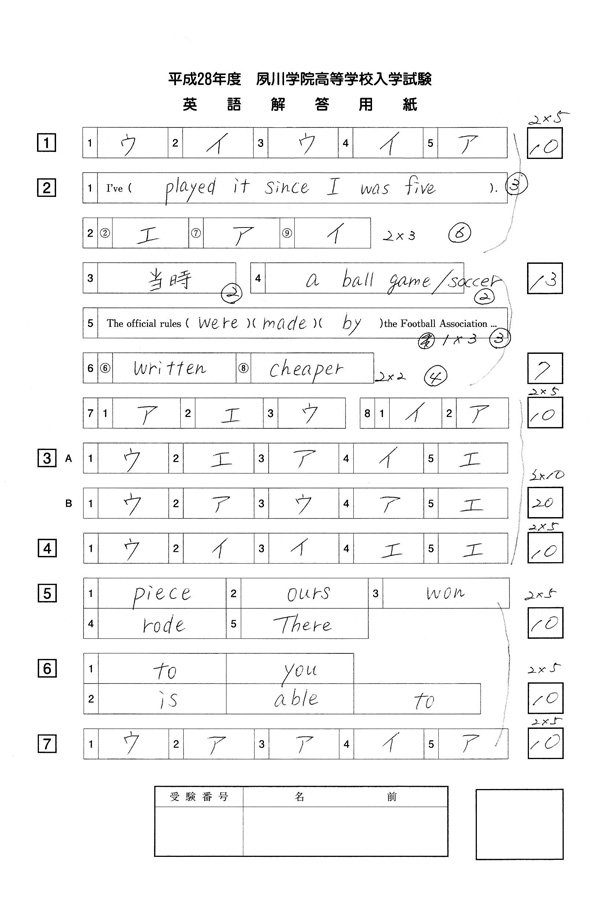 平成28年度 夙川学院高等学校入学試験
英語解答用紙
2×5
1 1 ウ 2 イ 3 ウ 4 イ 5 ア 10
2 1 I've ( played it since I was five ). ③
2 ② エ ⑦ ア ⑨ イ 2×3 ⑥
3 当時 ② 4 a ball game/soccer ② 13
5 The official rules ( were )( made )( by )the Football Association ...
1×3 ③
6 ⑥ written ⑧ cheaper 2×2 ④ 7
2×5
7 1 ア 2 エ 3 ウ 8 1 イ 2 ア 10
3 A 1 ウ 2 エ 3 ア 4 イ 5 エ
2×10
B 1 ウ 2 ア 3 ウ 4 ア 5 エ 20
2×5
4 1 ウ 2 イ 3 イ 4 エ 5 エ 10
5 1 piece 2 ours 3 won 2×5
4 rode 5 There 10
6 1 to you 2×5
2 is able to 10
2×5
7 1 ウ 2 ア 3 ア 4 イ 5 ア 10
受験番号 名前